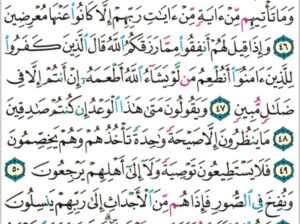 وَمَا تَأْتِيهِم مِّنْ ءَايَةٍ مِّنْ ءَايَٰتِ رَبِّهِمْ إِلَّا كَانُوا۟ عَنْهَا مُعْرِضِينَ
٤٦ وَإِذَا قِيلَ لَهُمْ أَنفِقُوا۟ مِمَّا رَزَقَكُمُ ٱللَّهُ قَالَ ٱلَّذِينَ كَفَرُوا۟
لِلَّذِينَ ءَامَنُوٓا۟ أَنُطْعِمُ مَن لَّوْ يَشَآءُ ٱللَّهُ أَطْعَمَهُۥٓ إِنْ أَنتُمْ إِلَّا فِى
ضَلَٰلٍ مُّبِينٍ ٤٧ وَيَقُولُونَ مَتَىٰ هَٰذَا ٱلْوَعْدُ إِن كُنتُمْ صَٰدِقِينَ
٤٨ مَا يَنظُرُونَ إِلَّا صَيْحَةً وَٰحِدَةً تَأْخُذُهُمْ وَهُمْ يَخِصِّمُونَ
٤٩ فَلَا يَسْتَطِيعُونَ تَوْصِيَةً وَلَآ إِلَىٰٓ أَهْلِهِمْ يَرْجِعُونَ ٥٠
وَنُفِخَ فِى ٱلصُّورِ فَإِذَا هُم مِّنَ ٱلْأَجْدَاثِ إِلَىٰ رَبِّهِمْ يَنسِلُونَ